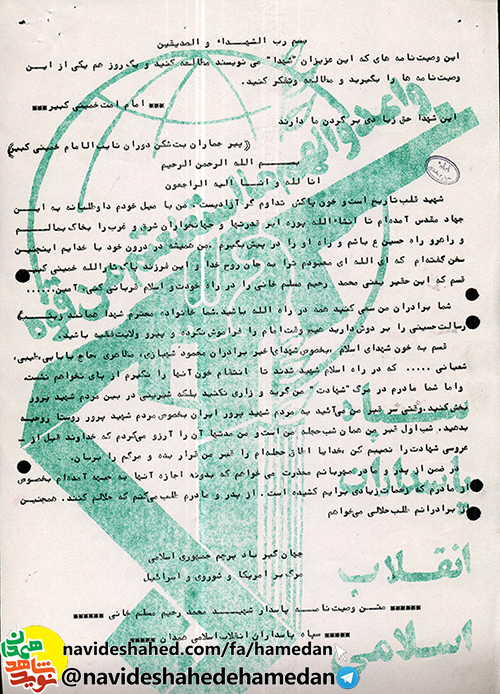 بسم رب الشهداء و الصدیقین
این وصیت‌نامه های که این عزیزان "شهدا" می نویسند مطالعه کنید و یک‌روز هم یکی از ایـــن
وصیت‌نامه ها را بگیرید و مطالعه وتفکر کنید.
*** امام امت خمینی کبیر ***
این شهدا حق زیادی بر گردن ما دارند
((پیر جماران بت شکن دوران نایب الامام خمینی کبیر))
بــســـم الله الرحمن الرحیم
انا لله و انــــا الیه الراجعون
شهید قلب تاریخ است و خون پاکش تداوم گر آزادیست. من با میل خودم داوطلبانه به ایـــن
جهاد مقدس آمده‌ام تا انشاءالله پوزه ابر قدرتها و جهانخواران شرق و غرب را بخاک بمالـــم
و راهرو راه حسین ع باشم و راه او را در پیش بگیرم من همیشه در درون خود با خدایم اینچنیـن
سخن گفته‌ام که ای الله ای معبودم ترا به جان روح خدا و این فرزند پاک رسول‌الله خمینی کبیر
قسم که این حقیر یعنی محمد رحیم مسلم خانی را در راه خودت و اسلام قربانی کنی . آمین.....
شما برادران من سعی کنید همه در راه الله باشید. شما خانواده محترم شهدا همانند
رسالت حسینی را بر دوش دارید هیچ وقت امام را فراموش نکرده و پیرو ولایت فقیه باشید.
قسم به خون شهدای اسلام ،بخصوص شهدای برادران محمود شهبازی، مظاهری ،حاج بابایی،طیبی،
شعبانی ..... که در راه اسلام شهید شدند تا انتقام خون آنها را نگیرم از پای نخواهم نشست.
واما شما مادرم در مرگ "شهادت" من گریه و زاری نکنید بلکه شیرینی در بین مردم شهید پرور
پخش کنید.وقتی سر قبر من می‌آئید به مردم شهید پرور ایران بخصوص مردم شهید پرور روستا روحیه
بدهید. شب اول قبر من همان شب حجله من است و من مدتها آن را آرزو می‌کردم که خداوند قبل از
عروسی شهادت را نصیبم کن .خدایا اطاق حجله‌ام را قبر من قرار بده و مرگم را برسان.
در ضمن از پدر و مادر مهربانم معذرت می خواهم که بدونه اجازه آنها به جبهه آمده‌ام بخصوص
از مادرم که زحمات زیادی برایم کشیده است . از پدر و مادرم طلب می‌کنم که حلالم کنند. همچنیـن
از برادرانم طلب حلالی می‌خواهم
جهان گیر باد پرچم جمهوری اسلامی
مرگ بر آمریکا و شوروی و اسرائیل
****** متـــن وصیت نامــه پاسدار شهیـــد محمد رحیم مسلم خانی ******
***** سپاه پاسداران انقلاب اسلامی همدان *****
سپاه
پاسداران
انقلاب
اسلامی
navideshahed.com/fa/hamedan
@navideshahedehamedan
نوید شاهد
همدان